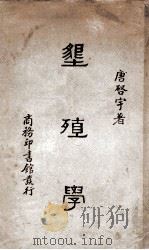 唐啓宇著
墾殖學
商務印書館發行